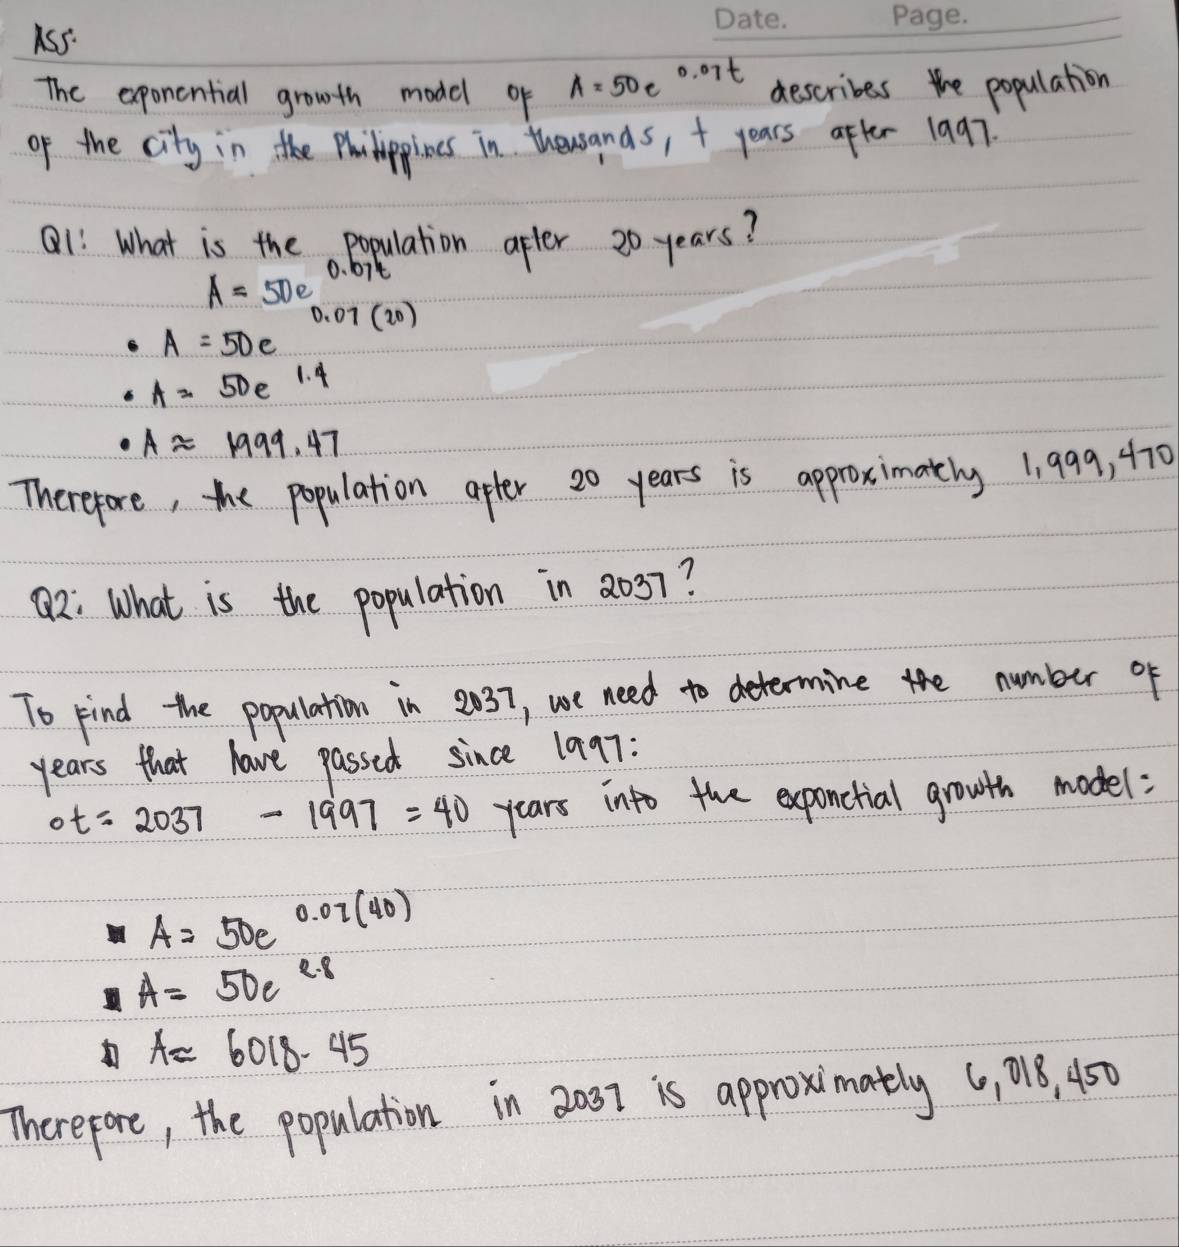 Date. Page.
Ass:
The exponential growth model of A = 50e^0.07t describes the population
of the city in the Philippines in thousands, t years after 1997.
Q1: What is the population after 20 years?
A = 50e^0.07t
• A = 50e^0.07(20)
• A = 50e^1.4
• A ≈ 1999.47
Therefore, the population after 20 years is approximately 1,999,470
Q2: What is the population in 2037?
To find the population in 2037, we need to determine the number of
years that have passed since 1997:
• t = 2037 - 1997 = 40 years into the exponctial growth model:
▪ A = 50e^0.07(40)
▪ A = 50e^2.8
▪ A ≈ 6018.45
Therefore, the population in 2037 is approximately 6,018,450